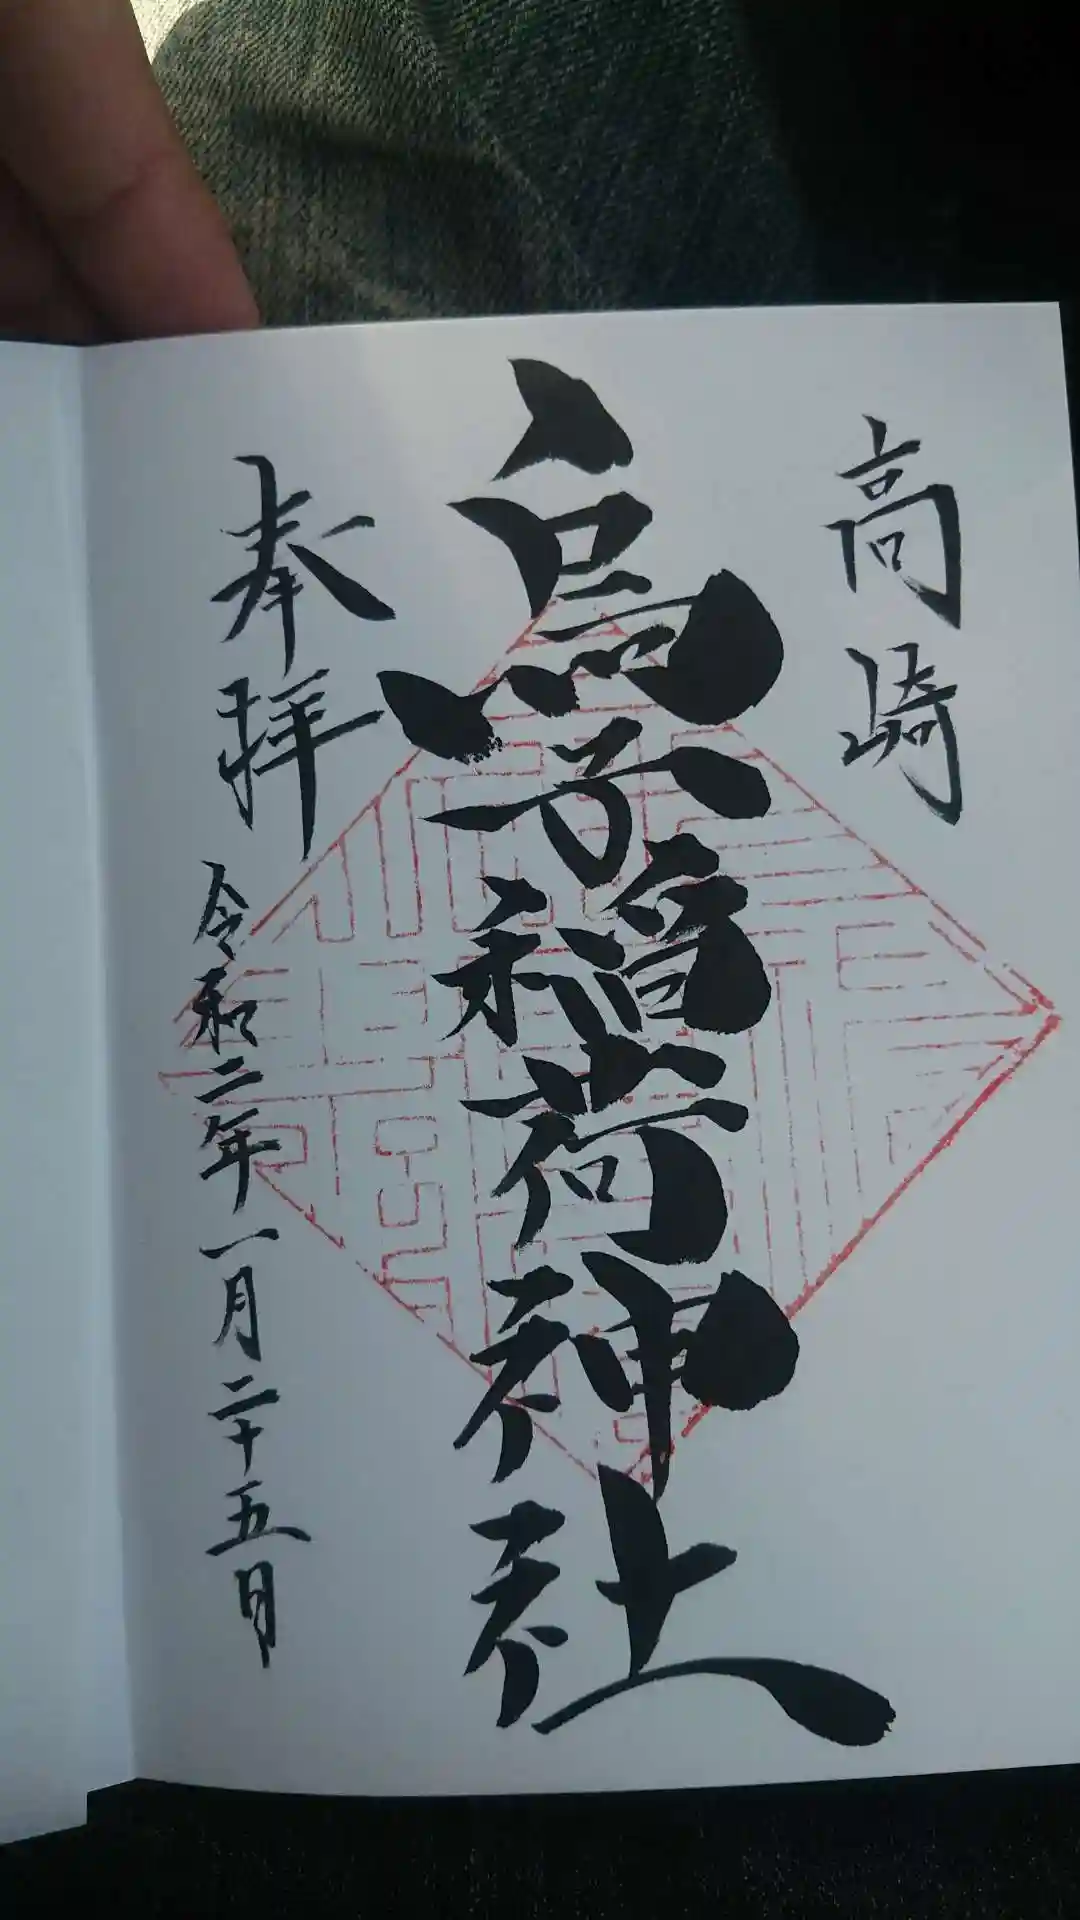 高崎
烏子稲荷神社
奉拝
令和二年一月二十五日